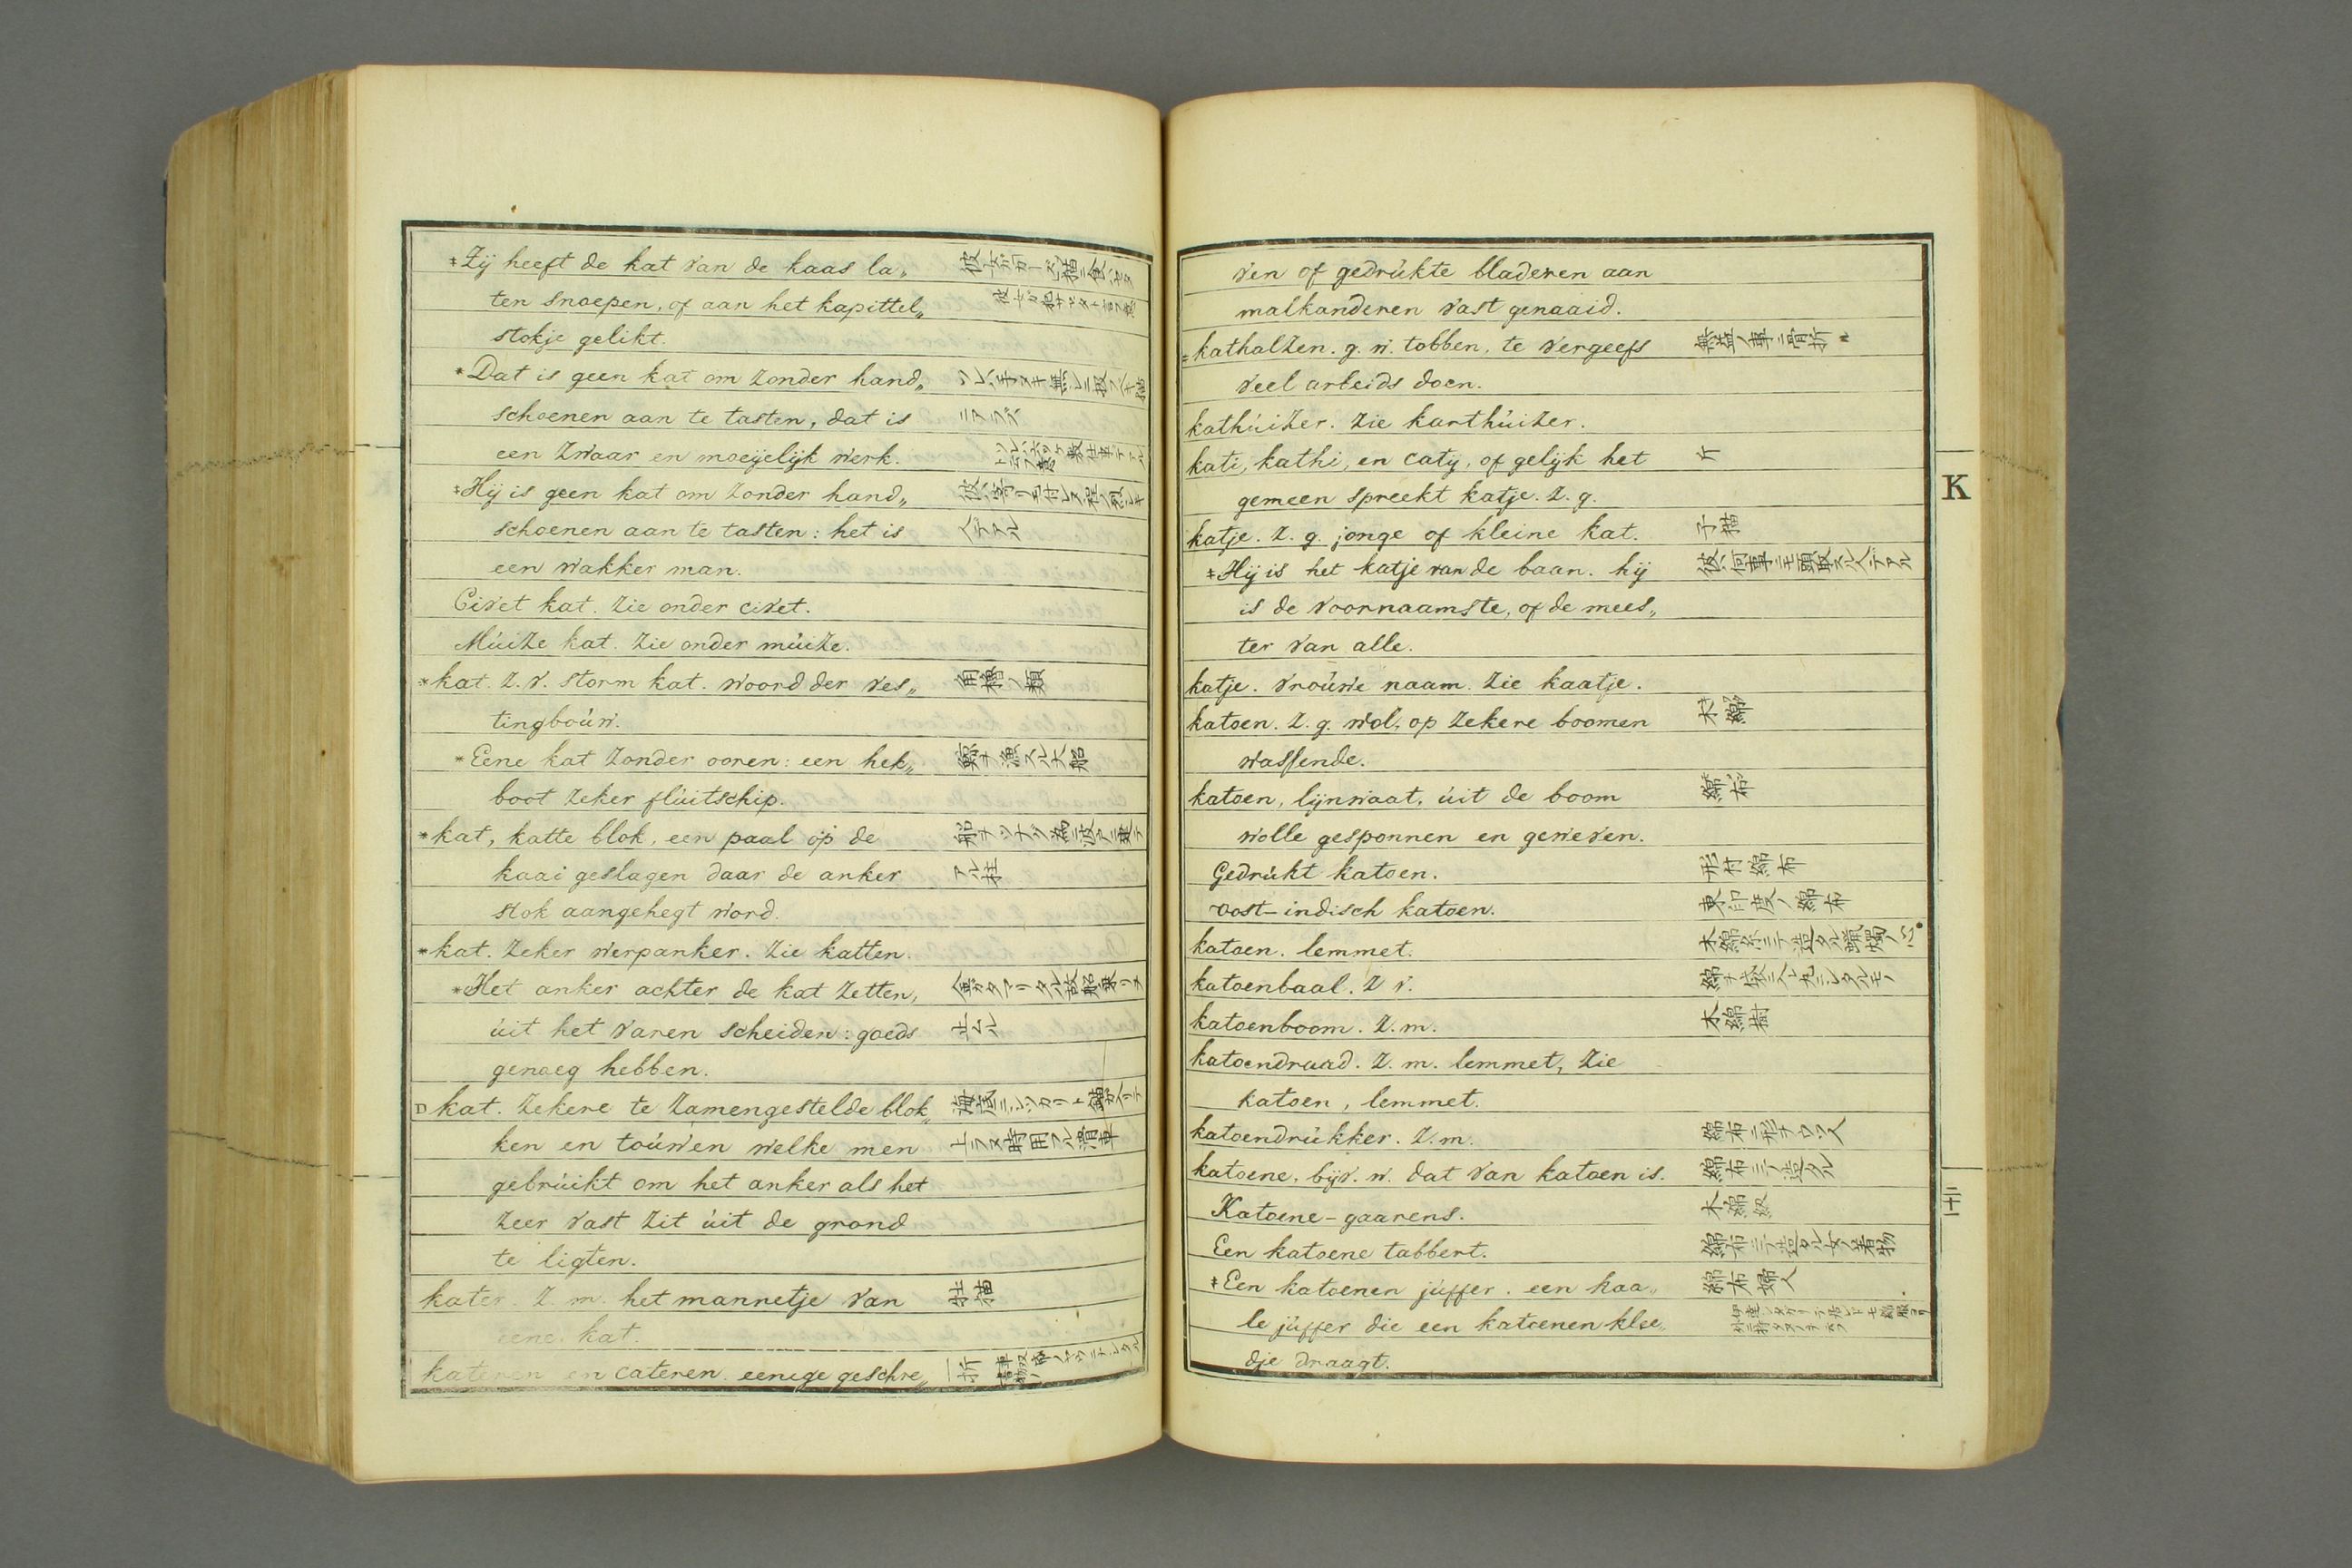 ‡Zij heeft de kat van de kaas la„
ten snoepen, of aan het kapittel„
stokje gelikt.
*Dat is geen kat om zonder hand„
schoenen aan te tasten, dat is
ニアラズ
een zwaar en moeijelijk werk.
‡Hij is geen kat om zonder hand„
schoenen aan te tasten: het is
人デアル
een wakker man.
Civet kat. zie onder civet.
Múize kat. zie onder múize.
*kat. z.v. storm kat. woord der ves„ 角櫓ノ類
tingboúw.
*Eene kat zonder ooren: een hek„ 鯨ヲ漁スル大船
boot zeker flúitschip.
*kat, katte blok, een paal op de 船ヲツナグ為ニ波戸ニ建テ
kaai geslagen daar de anker アル柱
stok aangehegt word.
*kat. zeker werpanker. zie katten.
*Het anker achter de kat zetten, 金ガタマリタル故船乗リヲ
úit het varen scheiden: goeds 止ムル
genoeg hebben.
kat. zekere te zamengestelde blok„ 海底ニシツカリト錨ガ入リテ
ken en toúwen welke men 上ラヌ時用フル滑車
gebrúikt om het anker als het
zeer vast zit úit de grond
te ligten.
kater. z. m. het mannetje van 牡猫
eene kat.
kateren en cateren. eenige geschre„ 一折
ven of gedrúkte bladeren aan
malkanderen vast genaaid.
kathalzen. g. w. tobben, te vergeefs 無益ノ事ニ骨折ル
veel arbeids doen.
kathúizer. zie karthúizer.
kati, kathi, en caty, of gelijk het 斤
gemeen spreekt katje. z. g.
katje. z. g. jonge of kleine kat. 子猫
‡Hij is het katje van de baan. hij 彼ハ何事ニモ頭取スル人デアル
is de voornaamste, of de mees„
ter van alle.
katje. vroúwe naam. zie kaatje.
katoen. z. g. wol, op zekere boomen 木綿
wassende.
katoen, lijnwaat, úit de boom 綿布
wolle gesponnen en geweven.
Gedrúkt katoen. 形付綿布
oost-indisch katoen. 東印度ノ綿布
katoen. lemmet. 木綿糸ニテ造タル蠟燭ノ心
katoenbaal. z v. 綿ヲ袋ニ入レ丸ニシタルモノ
katoenboom. z. m. 木綿樹
katoendraad. z. m. lemmet, zie
katoen, lemmet.
katoendrúkker. z. m. 綿布ニ形ヲ口ツ人
katoene. bijv. w. dat van katoen is. 綿布ニテ造タル
Katoene-gaarens. 木綿
Een katoene tabbert. 綿布ニテ造タル女ノ着物
‡Een katoenen júffer. een kaa„ 綿布婦人
le júffer die een katoenen klee„
dje draagt.
K